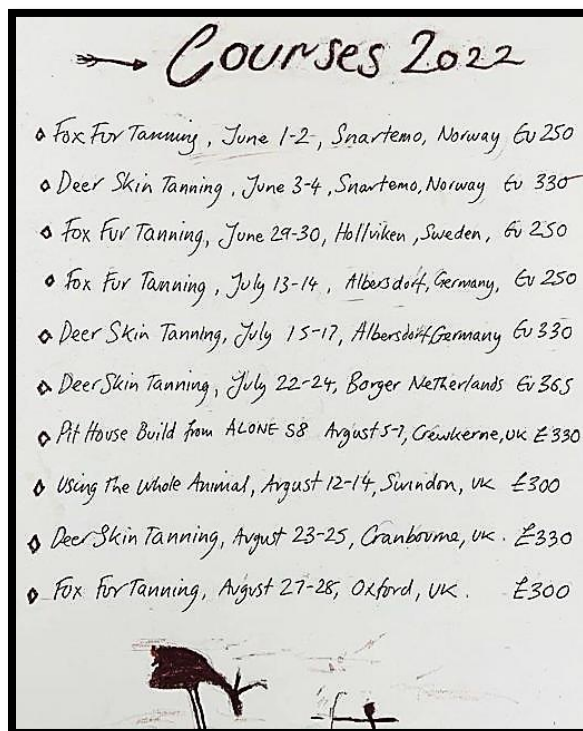 Courses 2022
Fox Fur Tanning, June 1-2, Snartemo, Norway Eu 250
Deer Skin Tanning, June 3-4, Snartemo, Norway Eu 330
Fox Fur Tanning, June 29-30, Hollviken, Sweden, Eu 250
Fox Fur Tanning, July 13-14, Albersdorf, Germany, Eu 250
Deer Skin Tanning, July 15-17, Albersdorf, Germany Eu 330
Deer Skin Tanning, July 22-24, Borger Netherlands Eu 365
Pit House Build from ALONE S8 August 5-7, Crewkerne, UK £330
Using The Whole Animal, August 12-14, Swindon, UK £300
Deer Skin Tanning, August 23-25, Cranbourne, UK. £330
Fox Fur Tanning, August 27-28, Oxford, UK. £300